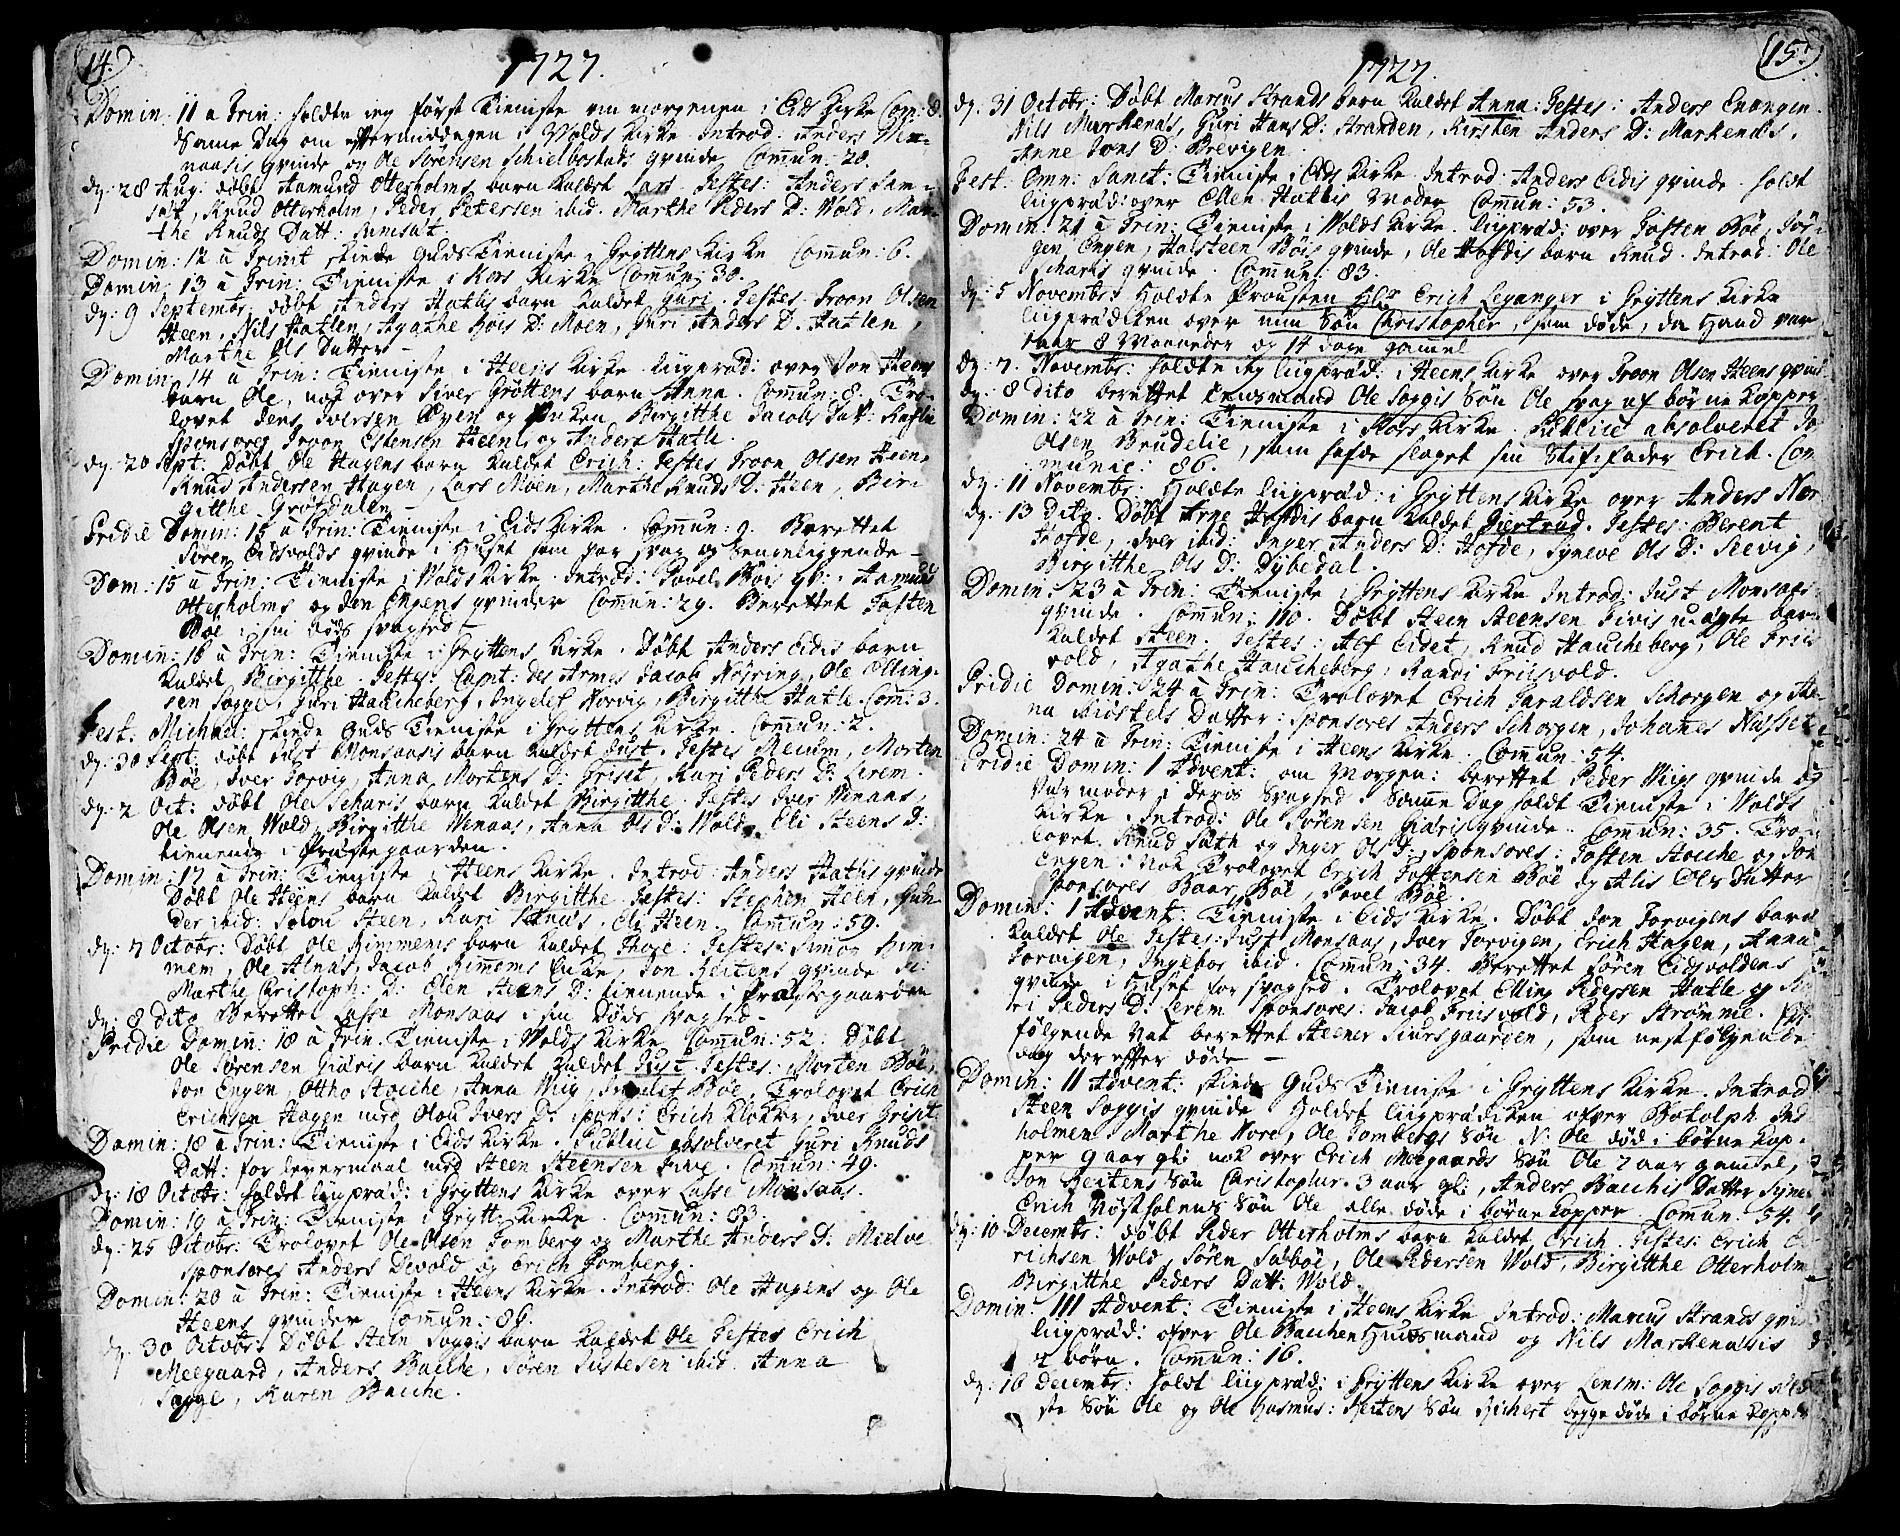 14.
1727.
Domin: 11 a Trin: holdte jeg först Tieniste om morgenen i Eids Kirke Com: 8.
Same Dag om eftermiddagen i Wolds Kirke. Introd: Anders Wen-
naasis qvinde og Ole Sörensen Schielbostads qvinde. Comun: 20.
dj: 28 Aug: döbt Aamund Otterholms barn kaldet Lars. Testes: Anders Sam-
sät, Knud Otterholm, Peder Petersen ibid. Marthe Peders D: Wold. Mar-
the Knuds Datt: Sumsät.
Domin: 12 a Trinit: skiede Guds Tieniste i Gryttens Kirke Comun: 6.
Domin: 13 a Trin: Tieniste i Kors Kirke Comun: 30.
dj: 9 Septembr: döbt Anders Hatlis barn kaldet Guri. Testes. Troon Olsen
Heen, Nils Hatlen, Agathe Böis D: Moen, Guri Anders D. Hatlen,
Marthe Ols Datter
Domin: 14 a Trin: Tieniste i Heens Kirke liigpräd: over Jon Heens
barn Ole, nok over Siver Gröttens barn Anna. Comun: 8. Tro-
lovet Jens Iversen Øyen og Enken Birgitthe Jacobs Dat:
Sponsores Troon Estensen Heen, og Anders Hatle.
dj: 20 Sept: Döbt Ole Hagens barn kaldet Erich: Testes Troon Olsen Heen,
Knud Andersen Hagen, Lars Moen, Marthe Knuds D: Heen, Bir-
gitthe Grösdalen
Pridie Domin: 15 a Trin: Tieniste i Eids Kirke. Comun: 9. Berettet
Sören Eidsvolds qvinde i Huset som var svag og sengeliggende
Dom: 15 a Trin: Tieniste i Wolds Kirke. Introd: Povel Böis qv:, Aamund
Otterholms og Jon Engens qvinder Comun: 29. Berettet Tosten
Böe i sin döds svaghed
Domin: 16 a Trin: Tieniste i Gryttens Kirke. Döbt Anders Eidis barn
kaldet Birgitthe. Testes: Capt: des Armes Jacob Nöjring, Ole Elling-
sen Sogge, Guri Haucheberg, Ingeles Norvig, Birgitthe Hatle. Com: 3.
Fest: Michael: skiede Guds Tieniste i Gryttens Kirke. Comun: 2.
dj: 30 Sept: döbt Just Monsaasis barn kaldet Just. Testes Meum, Morten
Böe, Iver Torvig, Anna Mortens D: Griset, Kari Peders D: Lerem.
dj: 2 Oct: döbt Ole Scharis barn kaldet Birgitthe. Testes Iver Wenaas,
Ole Olsen Wold, Birgitthe Wenaas, Anna Ols D: Wold, Eli Steens D:
tienende i Præstegaarden.
Domin: 17 a Trin: Tieniste i Heens Kirke. Introd: Anders Hatlis qvinde
Döbt Ole Heens barn kaldet Birgitthe. Testes: Stephen Heen, Gun-
der ibid: Solou Heen, Kari, Eli Heen. Comun: 59.
dj: 7 Octobr: Döbt Ole Himmems barn kaldet Thore: Testes: Simon Him-
mem, Ole Alnäs, Jacob Himmems Enke, Jon Heitens qvinde
Marthe Christoph: D: Elen Steens D: tienende i Præstegaarden
dj: 8 dito Berettet Lasse Monsaas i sin Döds svaghed
Pridie Domin: 18 a Trin. Tieniste i Wolds Kirke Comun: 52. Döbt
Ole Sörensen Giäris barn kaldet kaldet Just. Testes: Morten Böe,
Jon Engen, Ottho Houche, Anna Miig, Böe. Trolovet Erich
Erichsen Hagen med Olou Ivers D: spons: Erich Klokker, Iver Griset.
Domin: 18 a Trin: Tieniste i Eids Kirke. Publice absolveret Guri Knuds
Datt: for levermaal med Steen Steensen Five. Comun: 49.
dj: 18 Octobr: holdet liigpräd: i Gryttens Kirke over Lasse Monsaas.
Domin: 19 a Trin: Tieniste i Grytt: Kirke. Comun: 83.
dj: 25 Octobr: Trolovet Ole Olsen Tomberg og Marthe Anders D: Mielve
sponsores Anders Devold og Erich Tomberg.
Domin: 20 a Trin: Tieniste i Heens Kirke. Introd: Ole Hagens og Ole
Heens qvinder Comun: 89.
dj: 30 Octobr: Döbt Stein Soggis barn kaldet Ole Testes Erich
Meegaard, Anders Bache, Sören Justesen ibid. Anna
Sogge, Karen Bache.
15.
1727.
dj: 31 Octobr: Döbt Marcus Strands barn kaldet Anna: Testes: Anders Evangen
Nils Markenäs, Guri Hans D: Stranden, Kirsten Anders D: Markenäs.
Anne Jons D: Brevigen
Fest: Omn: Sanct: Tieniste i Eids Kirke. Introd: Anders Eidis qvinde. holdt
liigpräd: over Ellen Hatlis Moder. Comun: 53.
Domin: 21 a Trin: Tieniste i Wolds Kirke. liigpräd: over Tosten Böe, Jör-
gen Engen, Halsteen Böis qvinde, Ole Hofdis barn Knud. Introd: Ole
Scharis qvinde. Comun: 83.
dj: 5 Novembr: Holdte Prousten Hr Erich Leganger i Gryttens Kirke
liigprädiken over min Sön Christopher, som döde, da Hand var
1 aar 8 Maaneder og 14 dage gamel
dj: 7. Novembr: holdte jeg liigpräd: i Heens Kirke over Troon Olsen Heens qvinde
dj: 8 dito berettet Lensmand Ole Soggis Sön Ole svag af börnekopper
Domin: 22 a Trin: Tieniste i Kors Kirke. Publice absolveret Jo
Olsen Brudelie, som hafde slaget sin Stif-fader Erich. Com
munic: 86.
dj: 11 Novembr: Holdte liigpräd: i Gryttens Kirke over Anders Nor
dj: 13 Dito. Döbt Arne Hofdis barn kaldet Giertrud. Testes: Berent
Hofde, Iver ibid: Inger Anders D: Hofde, Syneve Ols D: Seevig,
Birgitthe Ols D: Dybedal.
Domin: 23 a Trin: Tieniste i Gryttens Kirke Introd: Just Monsaas
qvinde. Comun: 110. Döbt Steen Steensen Fivis uägte barn
kaldet Steen. Testes: Alf Eidet, Knud Haucheberg, Ole Friis
vold, Agathe Haucheberg, Randi Friisvold.
Pridie Domin: 24 a Trin: Trolovet Erich Haraldsen Schorgen og An-
na Kiöstels Datter: sponsores Anders Schorgen, Johannes Nusset
Domin: 24 a Trin: Tieniste i Heens Kirke. Comun: 54.
Pridie Domin: 1 Advent: om Morgen: berettet Peder Miigs qvinde og
Värmoder i deris Svaghed. Same Dag holdt Tieniste i Wolds
Kirke. Introd: Ole Sörensen Giäris qvinde. Comun: 35. Tro-
lovet Knud Säth og Inger Ols D:, sponsores: Tosten Houche og Jon
Engen: nok Trolovet Erich Tostensen Böe og Alis Ols Datter
sponsores Baar Böe, Povel Böe.
Domin: 1 Advent: Tieniste i Eids Kirke. Döbt Jon Torvigens barn
kaldet Ole. Testes: Just Monsaas, Iver Torvigen, Erich Hagen, Anna
Torvigen, Ingebor ibid. Comun: 34. Berettet Sören Eidsvoldens
qvinde i Huset for svaghed. Trolovet Elling Pedersen Hatle og Ka-
ri Peders D: Lerem sponsores: Jacob Friisvold, Peder Strömme. Eft
fölgende Nat berettet Steener Siursgaarden, som nestfölgende
dag der efter döde
Domin: 11 Advent: skiede Guds Tieniste i Gryttens Kirke. Introd
Steen Soggis qvinde Holdet liigprädiken ofver Botolph Ind-
holmen, Marthe Nore, Ole Tombergs Sön N: Ole död i börnekop-
per 9 aar gl: nok over Erich Meegaards Sön Ole 7 aar gamel,
Jon Heitens Sön Christopher. 3 aar gl:, Anders Bachis Datter Syne
Erich Nöstholmens Sön Ole alle döde i börnekopper. Comun: 54.
dj: 10 Decembr: döbt Peder Otterholms barn kaldet Erich. Testes: Erich E
richsen Wold, Sören Säböe, Ole Pedersen Wold, Birgitthe Otterholm
Birgitthe Peders Datt: Wold.
Domin: 111 Advent: Tieniste i Heens Kirke Introd: Marcus Strands qvinde
liigpräd: ofver Ole Bachen Huusmand og Nils Markenäsis
2 börn. Comun: 16.
dj: 16 Decembr: holdt liigpräd: i Gryttens Kirke over Lensm: Ole Soggis äld-
ste Sön Ole og Ole Rasmus: Heitens Sön Richert begge döde i börnekopper